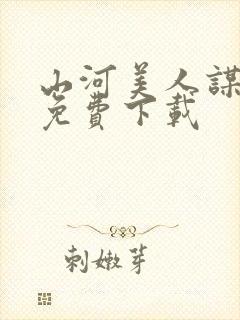 山河美人謀
免費下載
刺嫩芽